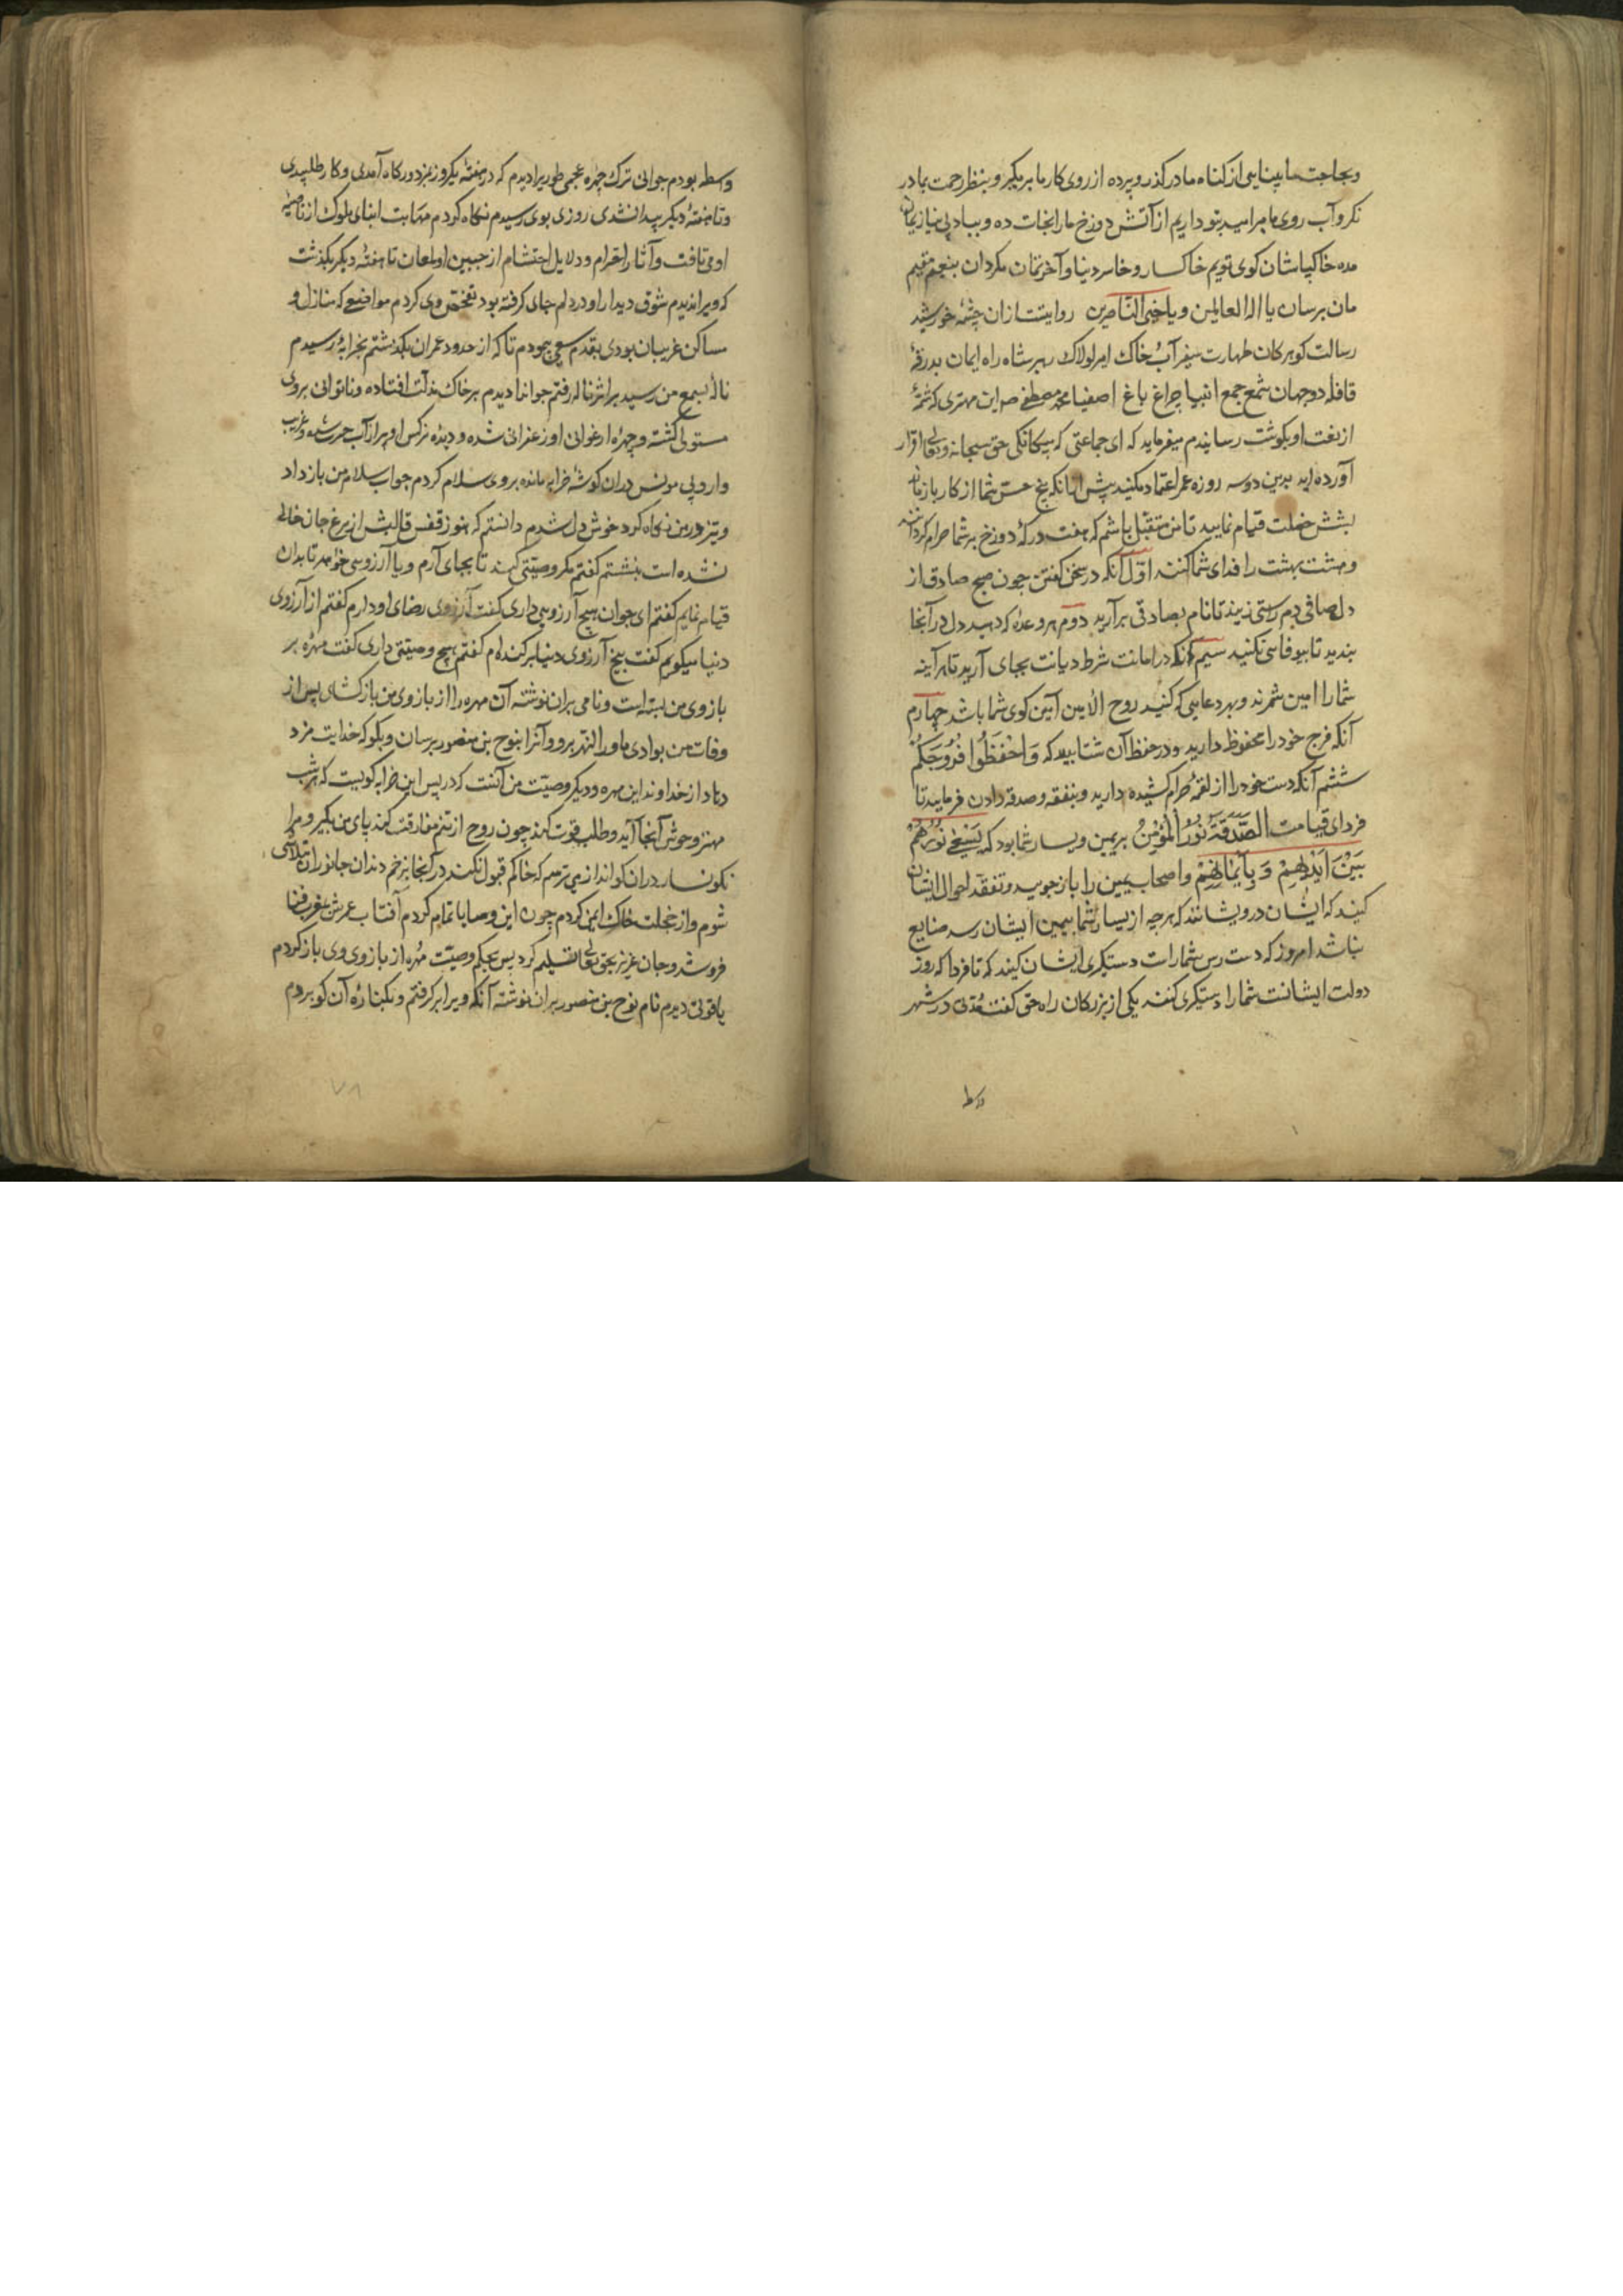 وبحاجت ما بینایی از کناه ما درکذر وپرده از روی کار ما برمکیر وبنظر رحمت بما در
نکر وآب روی ما مبر امید بتو داریم از آتش دوزخ ما را نجات ده وبباد بی نیازیمان
مده خاکپاشان کوی توییم خاکسار وخاسر دنیا وآخرتمان مکردان بنعیم مقیم
مان برسان یا اله العالمین ویا خیر الناصرین روایتست ازان چشمه خورشید
رسالت کوهر کان طهارت سفیر آب وخاک امیر لولاک رهبر شاه راه ایمان بدرقهٔ
قافله دو جهان شمع جمع انبیا چراغ باغ اصفیا محمد مصطفی ص این مهتری که شمهٔ
از نعت او بکوشت رسانیدم میفرماید که ای جماعتی که بیکانکی حق سبحانه وتعالی اقرار
آورده اید بدین دوسه روزه عمر اعتماد مکنید پیش ازانکه حس شما از کار بازماند
بشش خصلت قیام نمایید تا من متقبل باشم که هفت درکهٔ دوزخ بر شما حرام کردانند
وهشت بهشت را فدای شما کنند اول آنکه در سخن کفتن چون صبح صادق از
دل صافی دم راستی زنید تا نام بصادقی برآرید دوم هر وعدهٔ که دهید دل در آنجا
بندید تا بیوفایی نکنید سیم آنکه در امانت شرط دیانت بجای آرید تا هر آینه
شما را امین شمرند وبهر دعایی که کنید روح الامین آمین کوی شما باشد چهارم
آنکه فرج خود را محفوظ دارید ودر حفظ آن شتابید که وَاحْفَظُوا فُرُوجَكُمْ
ششم آنکه دست خود را از لقمهٔ حرام کشیده دارید وبنفقه وصدقه دادن فرمایید تا
فردای قیامت الصَّدَقَةُ نُورُ الْمُؤْمِنُ بریمین ویسار شما بود که يَسْعَىٰ نُورُهُمْ
بَيْنَ أَيْدِيهِمْ وَبِأَيْمَانِهِمْ واصحاب یمین را بازجویید وتفقد احوال ایشان
کنید که ایشان درویشانند که هرچه از یسار شما بیمین ایشان رسد ضایع
نباشد امروز که دست رس شماراست دستکیری ایشان کنید که تا فردا که روز
دولت ایشانست شما را دستکیری کنند یکی از بزرکان راه حق کفت مدتی در شهر
واسط
واسط بودم جوانی ترک چهره عجمی طور را دیدم که در هفته یکروز بمزدور کاه آمدی وکار طلبیدی
وتا هفتهٔ دیکر پیدا نشدی روزی بوی رسیدم نکاه کردم مهابت ابنای ملوک از ناصیهٔ
او می تافت وآثار احترام ودلایل احتشام از جبین او لمعان تا هفتهٔ دیکر بکذشت
که ویرا ندیدم شوق دیدار او در دلم جای کرفته بود تفحص وی کردم مواضعی که منازل و
مساکن غریبان بودی بقدم سعی پیمودم تا که از حدود عمران بکذشتم بخرابهٔ رسیدم
نالهٔ بسمع من رسید بر اثر ناله رفتم جوانرا دیدم بر خاک مذلت افتاده وناتوانی بروی
مستولی کشته وچهرهٔ ارغوانی او زعفرانی شده ودیدهٔ نرکس او پر از آب حسرت وغریب
وار وبی مونس دران کوشهٔ خرابه مانده بروی سلام کردم جواب سلام من باز داد
وتیز در من نکاه کرد خوش دل شدم دانستم که هنوز قفس قالبش از مرغ جان خالی
نشده است بنشستم کفتم مکر وصیتی کند تا بجای آرم ویا آرزویی خواهد تا بدان
قیام نمایم کفتم ای جوان هیچ آرزویی داری کفت آرزوی رضای او دارم کفتم از آرزوی
دنیا میکویم کفت بیخ آرزوی دنیا برکنده ام کفتم هیچ وصیتی داری کفت مهرهٔ بر
بازوی من بسته است ونامی بران نوشته آن مهره را از بازوی من بازکشای پس از
وفات من بوادی ماوراء النهر برو وآنرا بنوح بن منصور برسان وبکو که خدایت مزد
دهاد از خداوند این مهره ودیکر وصیت من آنست که در پس این خرابه کویست که هر شب
وحوش آنجا آید وطلب قوت کند چون روح از تنم مفارقت کند پای من بکیر ومرا
نکونسار دران کو انداز می ترسم که خاکم قبول نکند در آنجا بزخم دندان جانوران متلاشی
شوم واز خجلت خاک ایمن کردم چون این وصایا تمام کردم آفتاب عمرش بغرب فنا
فروشد وجان عزیز بحق تعالی تسلیم کرد پس بحکم وصیت مهره از بازوی وی باز کردم
یاقوتی دیدم نام نوح بن منصور بران نوشته آنکه ویرا برکرفتم وبکنارهٔ آن کو بردم
۷۸